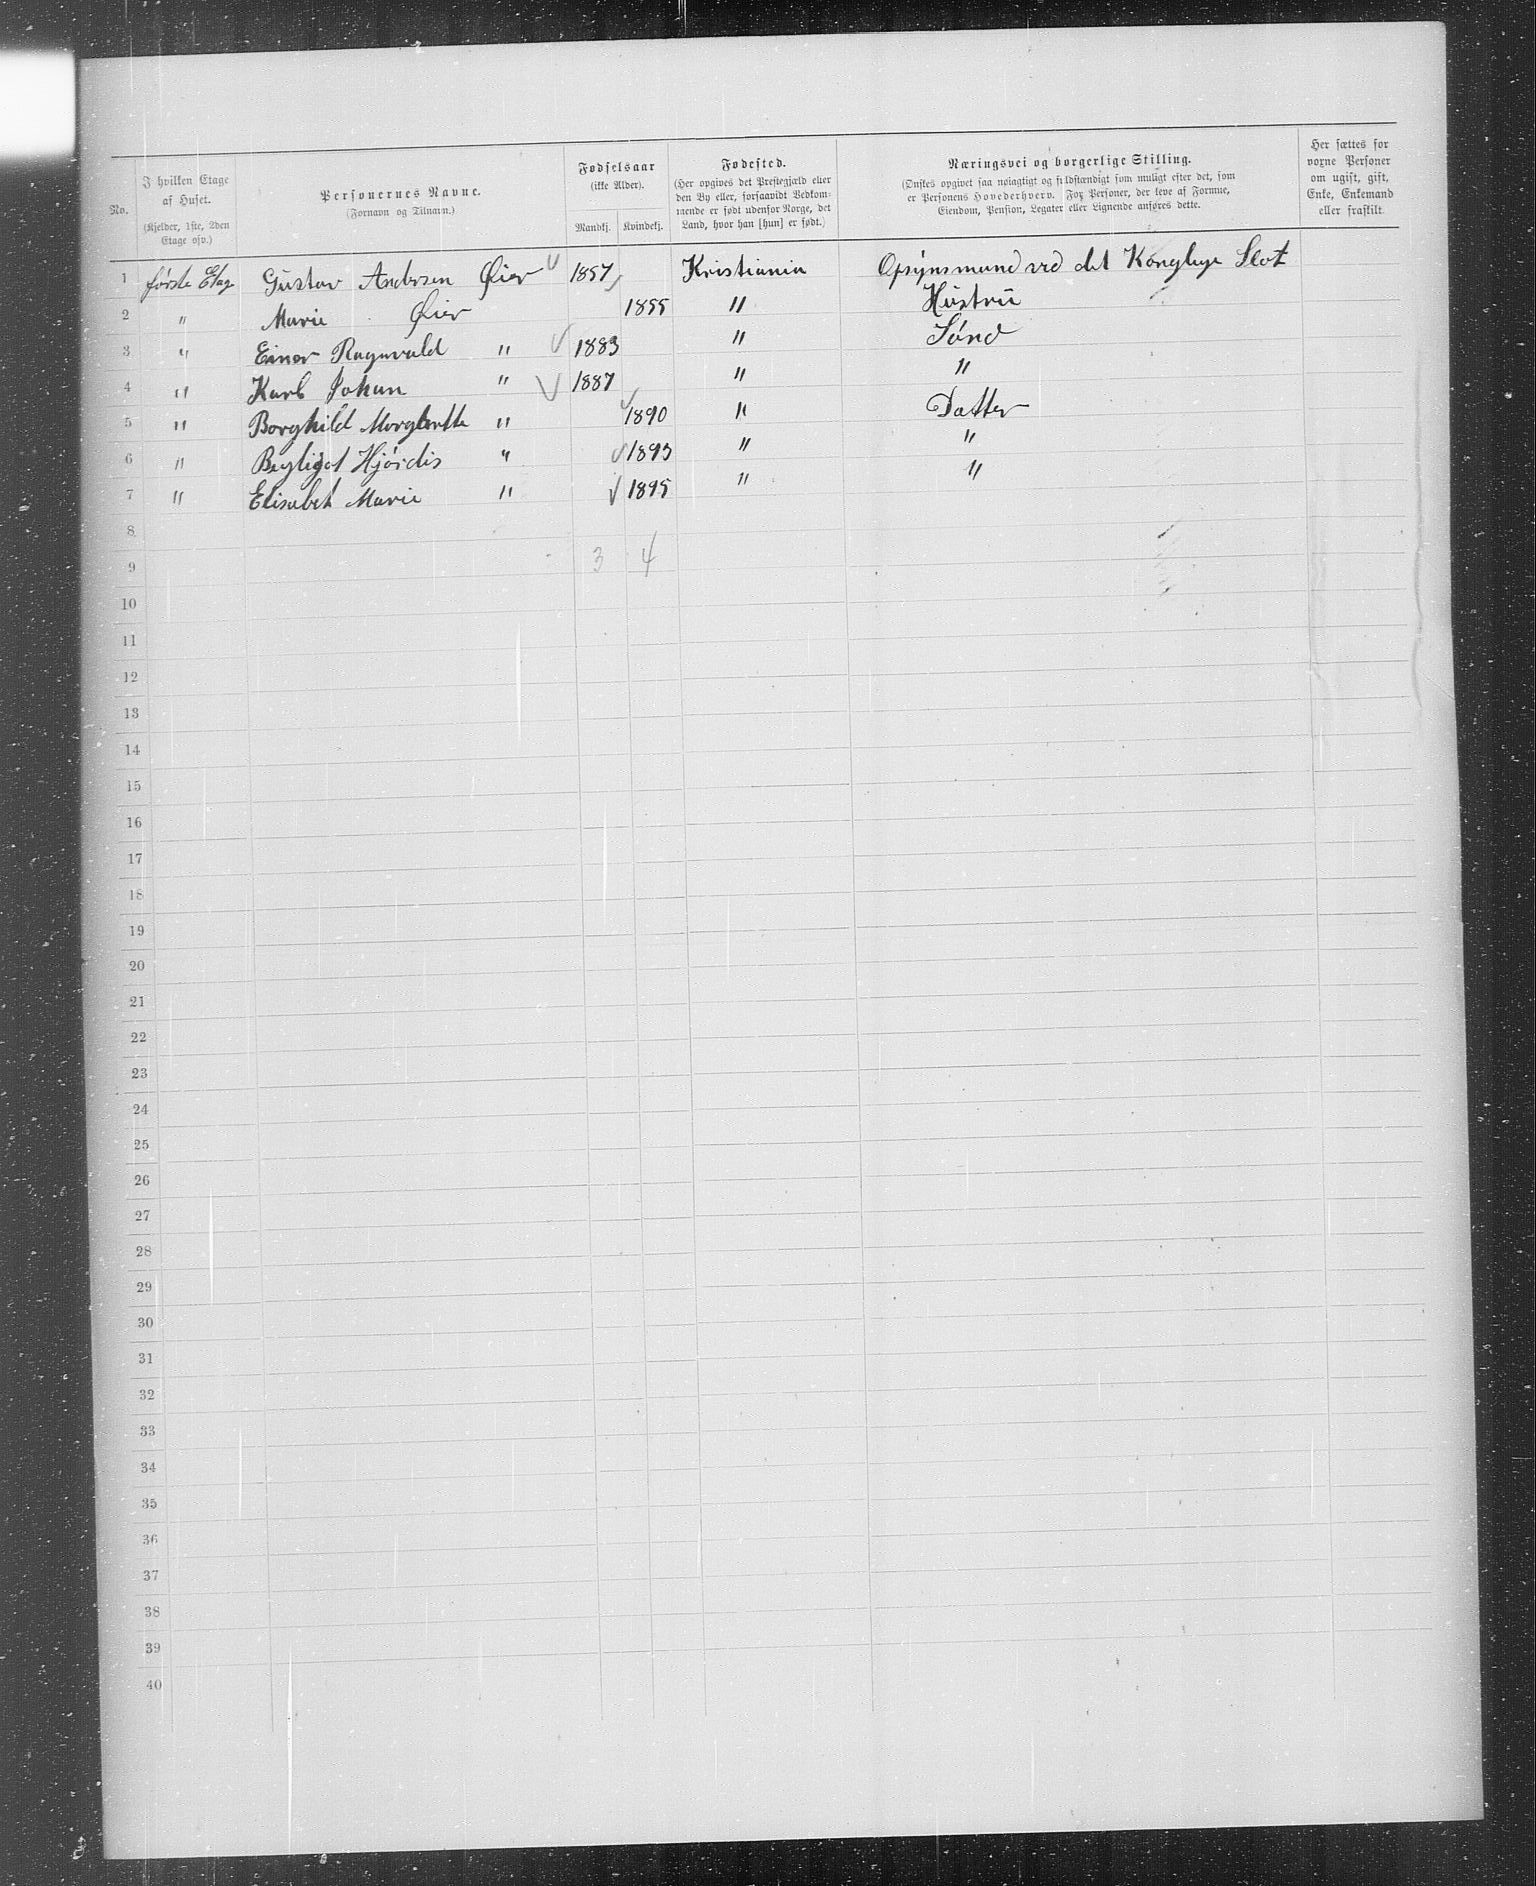 No.
I hvilken Etage af Huset.
(Kjelder, 1ste, 2den Etage osv.)
Personernes Navne.
(Fornavn og Tilnavn.)
Fødselsaar
(ikke Alder).
Mandkj. Kvindekj.
Fødested.
(Her opgives det Prestegjæld eller den By eller, forsaavidt Vedkommende er født udenfor Norge, det Land, hvor han [hun] er født.)
Næringsvei og borgerlige Stilling.
(Ønskes opgivet saa nøiagtigt og fuldstændigt som muligt efter det, som er Personens Hovederhverv. For Personer, der leve af Formue, Eiendom, Pension, Legater eller Lignende anføres dette.
Her sættes for voxne Personer om ugift, gift, Enke, Enkemand eller fraskilt.
1 første Etage Gustav Andersen Øier 1857 Kristiania Opsynsmand ved det Kongelige Slot
2 " Marie Øier 1855 " Hustru
3 " Einar Ragnvald " 1883 " Sønd
4 " Karl Johan " 1887 " "
5 " Borghild " 1890 " Datter
6 " Hjørdis " 1893 " "
7 " Elisabet Marie " 1895 " "
8
9 3 4
10
11
12
13
14
15
16
17
18
19
20
21
22
23
24
25
26
27
28
29
30
31
32
33
34
35
36
37
38
39
40